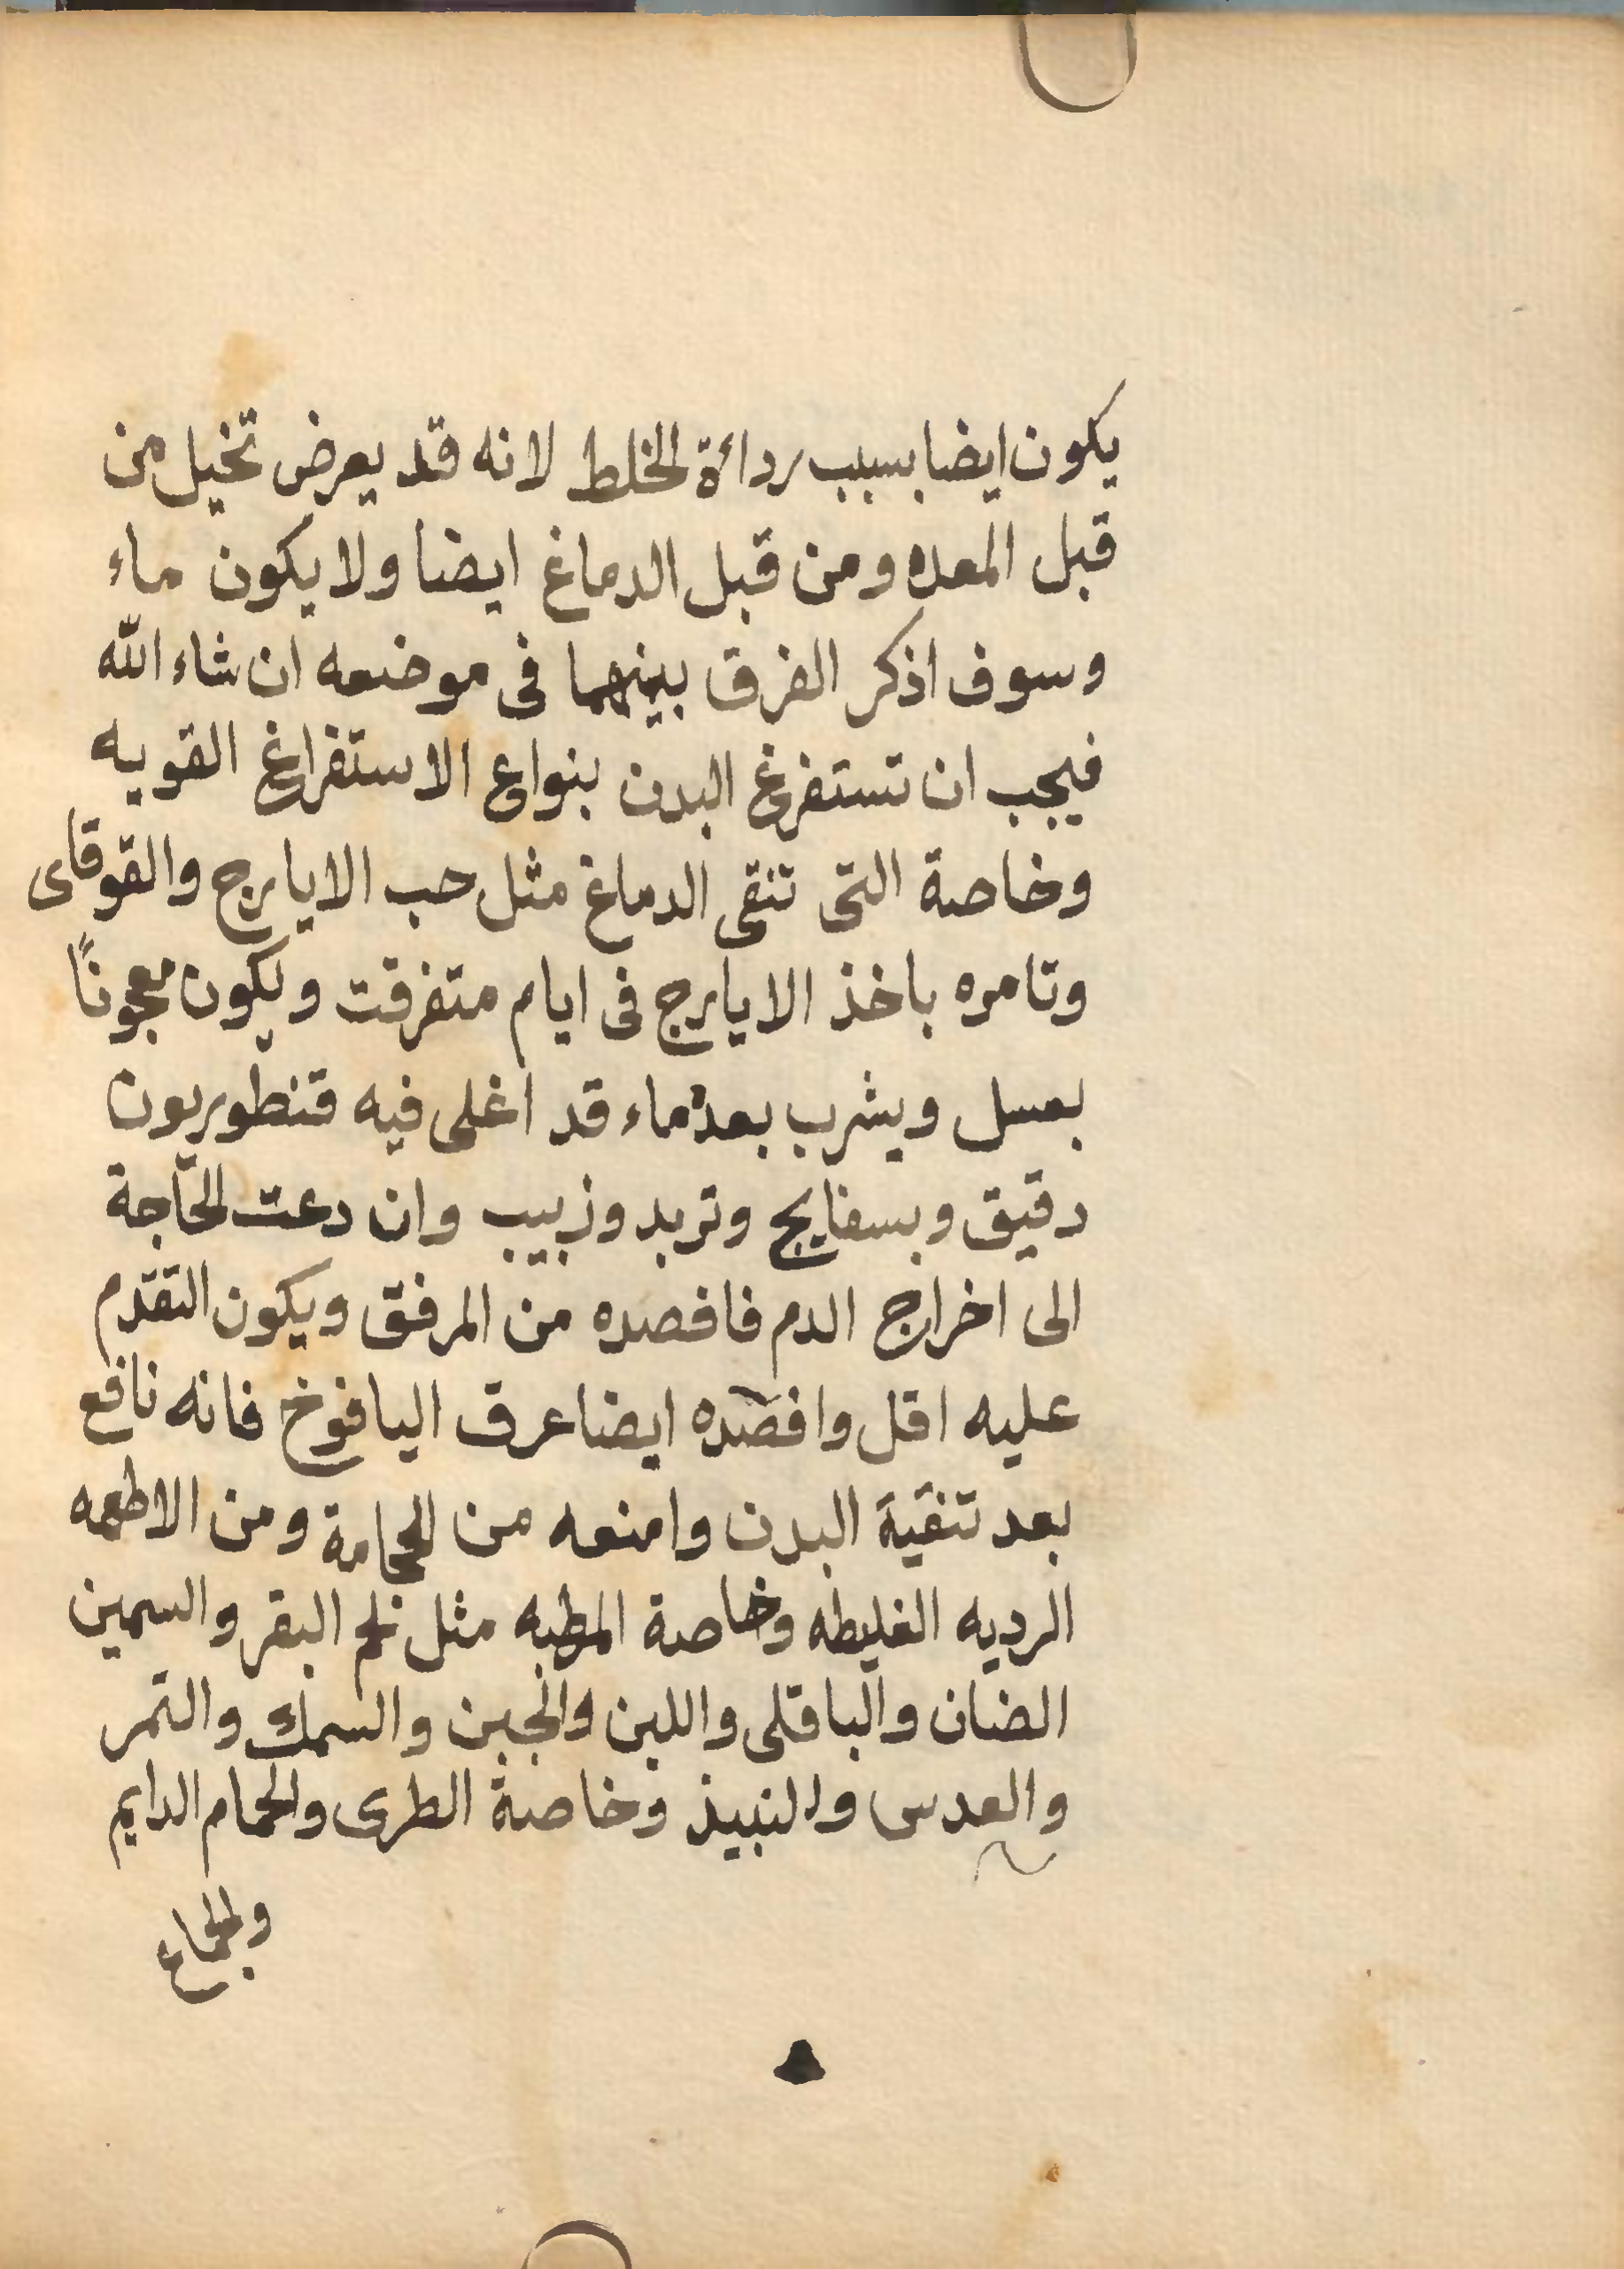 يكون ايضا بسبب ردائة الخلط لانه قد يعرض تخيل من
قبل المعده ومن قبل الدماغ ايضا ولا يكون ماء
وسوف اذكر الفرق بينهما فى موضعه ان شاء الله
فيجب ان تستفرغ البدن بنواع الاستفراغ القويه
وخاصة التى تنقى الدماغ مثل حب الايارج والقوقاى
وتامره باخذ الايارج فى ايام متفرقت ويكون معجونًا
بعسل ويشرب بعده ماء قد اغلى فيه قنطوريون
دقيق وبسفايج وتربد وزبيب وان دعت الحاجة
الى اخراج الدم فافصده من المرفق ويكون التقدم
عليه اقل وافصده ايضا عرق اليافوخ فانه نافع
بعد تنقية البدن وامنعه من الحجامة ومن الاطعمه
الرديه الغليظه وخاصة المطبه مثل لحم البقر والسمين
الضان والباقلى واللبن والجبن والسمك والتمر
والعدس والنبيذ وخاصة الطرى والحمام الدايم
والجماع